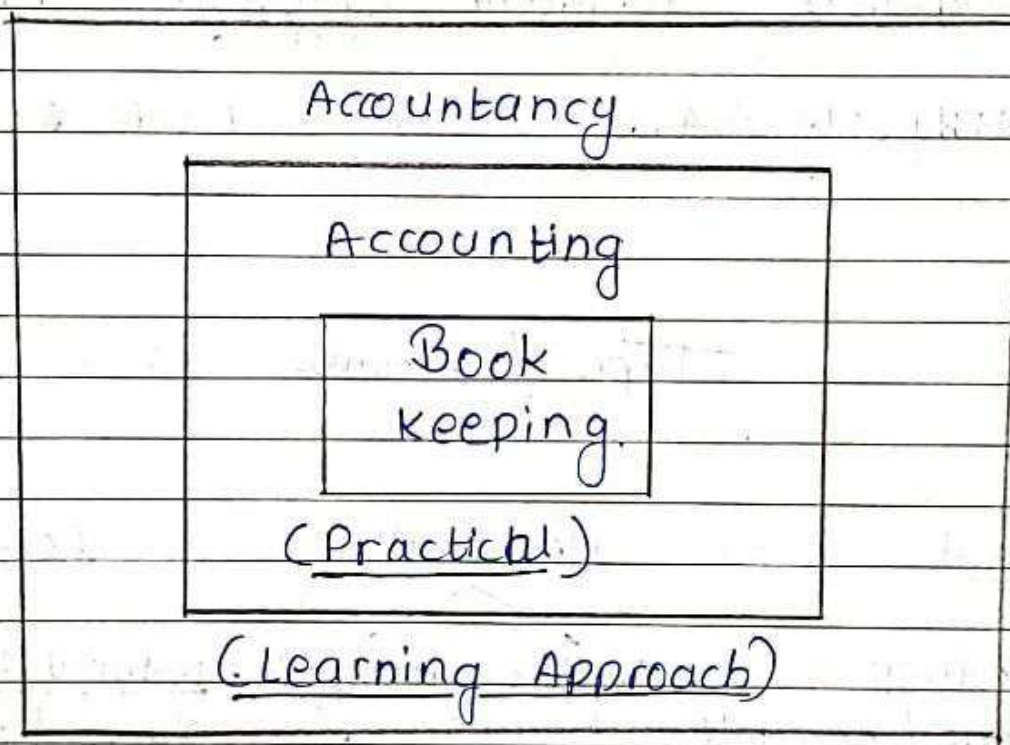 Accountancy.
Accounting
Book
Keeping.
(Practical.)
(Learning Approach)